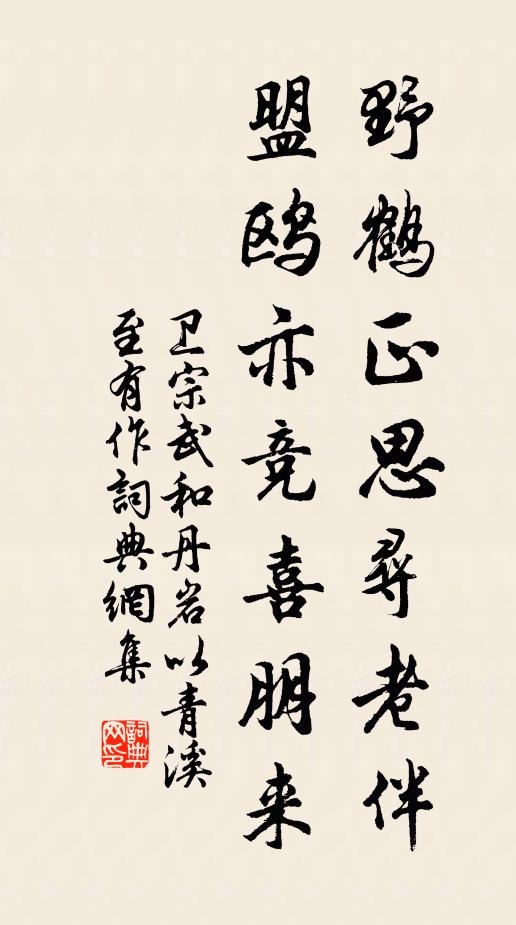 野鶴正思尋老伴
盟鸥亦竞喜朋来
卫宗武和丹岩以青溪
至有作詞典網集
詞典
网印